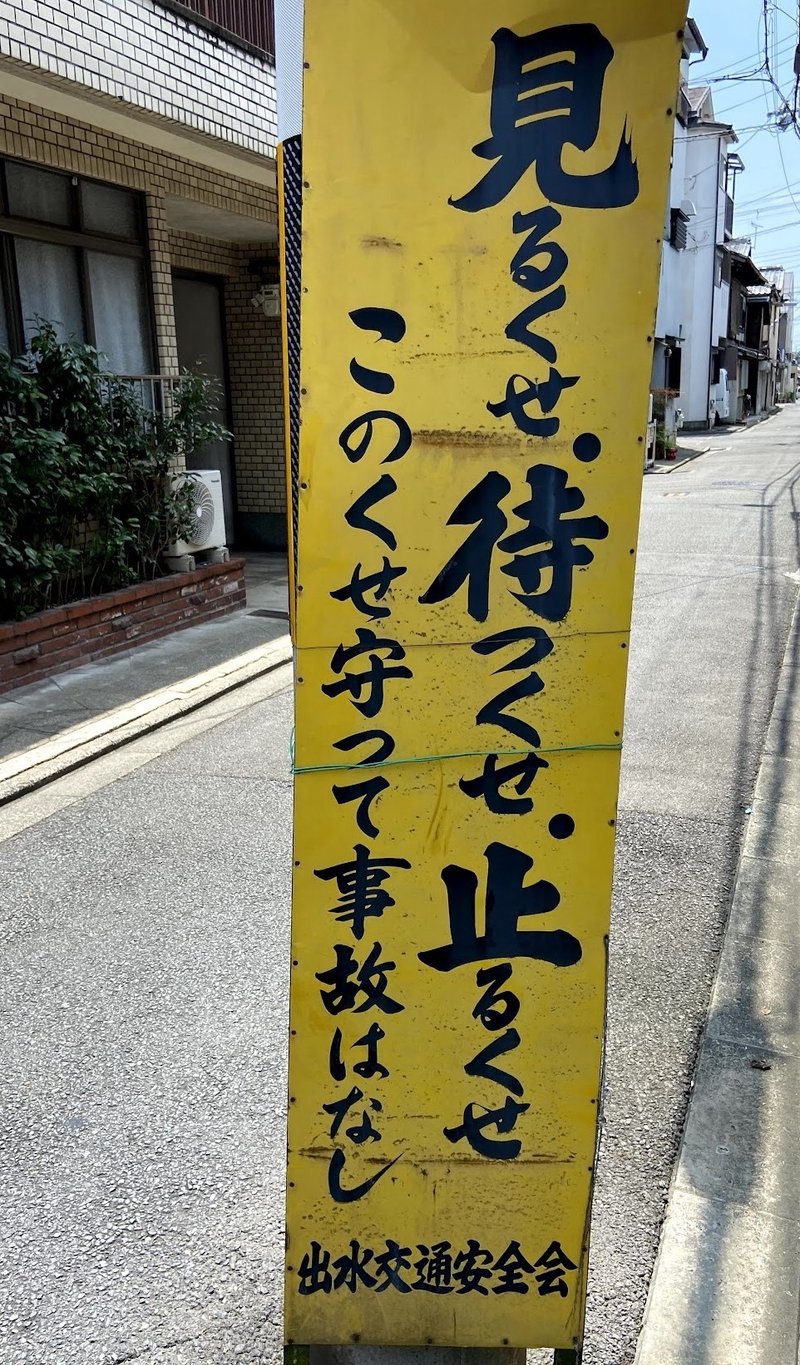 見るくせ・待つくせ・止るくせ
このくせ守って事故はなし
出水交通安全会